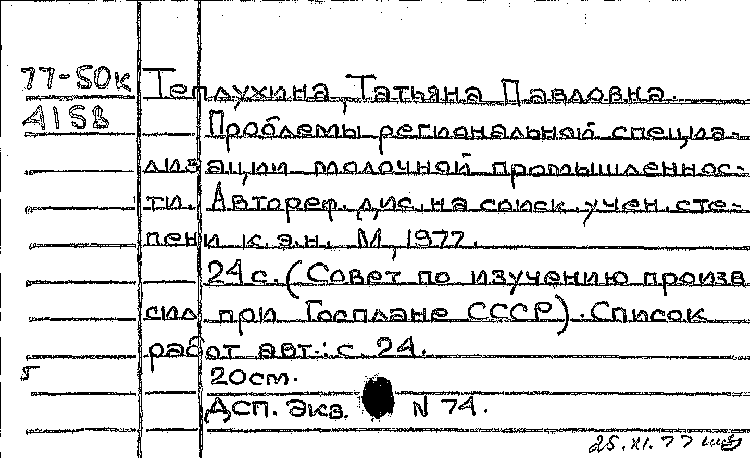 77-50к Теплухина, Татьяна Павловна.
А158 Проблемы региональной специа-
лизации молочной промышленнос-
ти. Автореф. дис. на соиск. учен. сте-
пени к.э.н. М., 1977.
24 с. (Совет по изучению произв
сил при Госплане СССР). Список
работ авт.: с. 24.
20см.
ДСП. Экз. N 74.
25.XI.77